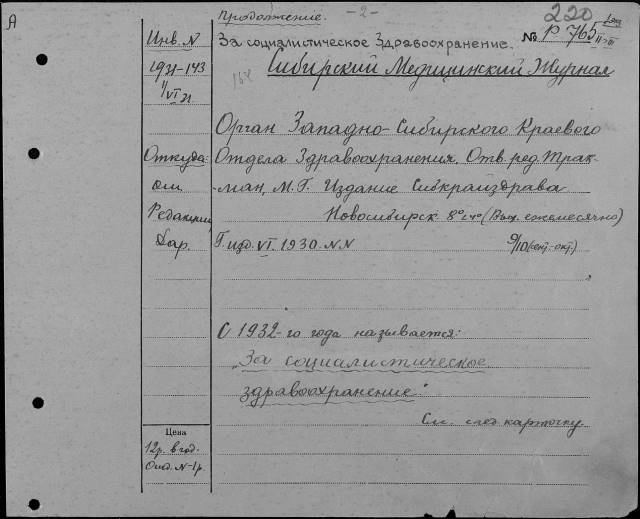 А
Продолжение.
- 2 -
220
Инв. N
За социалистическое Здравоохранение.
№ Р 765 II-III
1931-143
164
Сибирский Медицинский Журнал
1/VI 31
Орган Западно-Сибирского Краевого
Откуда:
Отдела Здравоохранения. Отв. ред. Трак-
-ман, М. Г. Издание Сибкрайздрава
Редакции
Новосибирск 8° (Вых. ежемесячно)
Дар.
Г. изд. VI. 1930. N.N
9/10 (сент.-окт.)
С 1932-го года называется:
„За социалистическое
здравоохранение."
См. след. карточку.
Цена
12р. в год.
Отд. N-1р.